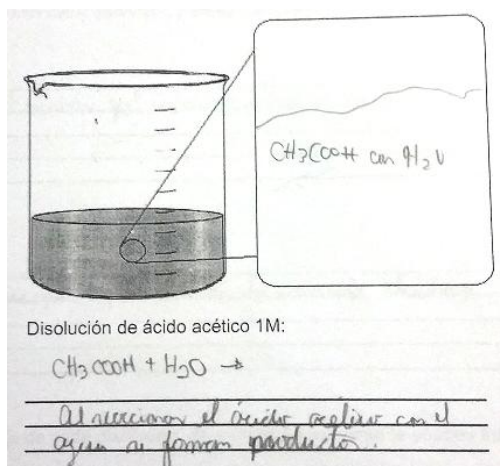 CH3COOH con H2O
Disolución de ácido acético 1M:
CH3COOH + H2O →
Al reaccionar el ácido acético con el
agua se forman productos.